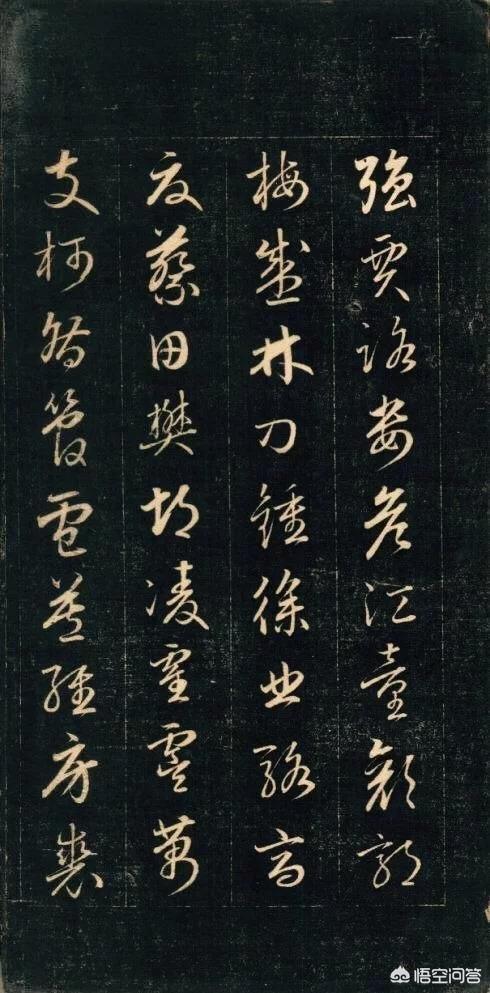 強賈路婁危江童顏郭
梅盛林刁鍾徐丘駱高
夏蔡田樊胡凌霍虞萬
支柯昝管盧莫經房裘
悟空问答